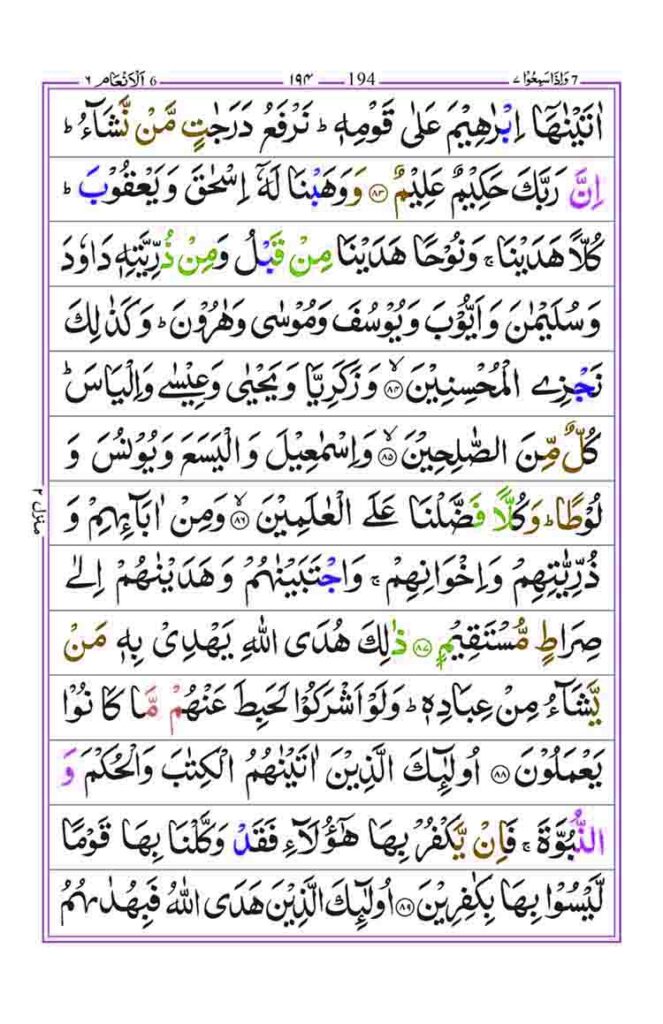 وَاِذَا سَمِعُوْا ٧ 7 194 ١٩٤ اَلْاَنْعَام ٦ 6
اٰتَيْنٰهَاۤ اِبْرٰهِيْمَ عَلٰى قَوْمِهٖ ؕ نَرْفَعُ دَرَجٰتٍ مَّنْ نَّشَآءُ ؕ
اِنَّ رَبَّكَ حَكِيْمٌ عَلِيْمٌ ﴿۸۳﴾ وَوَهَبْنَا لَهٗۤ اِسْحٰقَ وَيَعْقُوْبَ ؕ
كُلًّا هَدَيْنَا ۚ وَنُوْحًا هَدَيْنَا مِنْ قَبْلُ وَمِنْ ذُرِّيَّتِهٖ دَاوٗدَ
وَسُلَيْمٰنَ وَاَيُّوْبَ وَيُوْسُفَ وَمُوْسٰى وَهٰرُوْنَ ؕ وَكَذٰلِكَ
نَجْزِى الْمُحْسِنِيْنَ ﴿۸۴﴾ۙ وَزَكَرِيَّا وَيَحْيٰى وَعِيْسٰى وَاِلْيَاسَ ؕ
كُلٌّ مِّنَ الصّٰلِحِيْنَ ﴿۸۵﴾ۙ وَاِسْمٰعِيْلَ وَالْيَسَعَ وَيُوْنُسَ وَ
لُوْطًا ؕ وَكُلًّا فَضَّلْنَا عَلَى الْعٰلَمِيْنَ ﴿۸۶﴾ۙ وَمِنْ اٰبَآئِهِمْ وَ
ذُرِّيّٰتِهِمْ وَاِخْوَانِهِمْ ۚ وَاجْتَبَيْنٰهُمْ وَهَدَيْنٰهُمْ اِلٰى
صِرَاطٍ مُّسْتَقِيْمٍ ﴿۸۷﴾ ذٰلِكَ هُدَى اللّٰهِ يَهْدِىْ بِهٖ مَنْ
يَّشَآءُ مِنْ عِبَادِهٖ ؕ وَلَوْ اَشْرَكُوْا لَحَبِطَ عَنْهُمْ مَّا كَانُوْا
يَعْمَلُوْنَ ﴿۸۸﴾ اُولٰٓئِكَ الَّذِيْنَ اٰتَيْنٰهُمُ الْكِتٰبَ وَالْحُكْمَ وَ
النُّبُوَّةَ ۚ فَاِنْ يَّكْفُرْ بِهَا هٰٓؤُلَآءِ فَقَدْ وَكَّلْنَا بِهَا قَوْمًا
لَّيْسُوْا بِهَا بِكٰفِرِيْنَ ﴿۸۹﴾ اُولٰٓئِكَ الَّذِيْنَ هَدَى اللّٰهُ فَبِهُدٰىهُمُ
منزل ٢